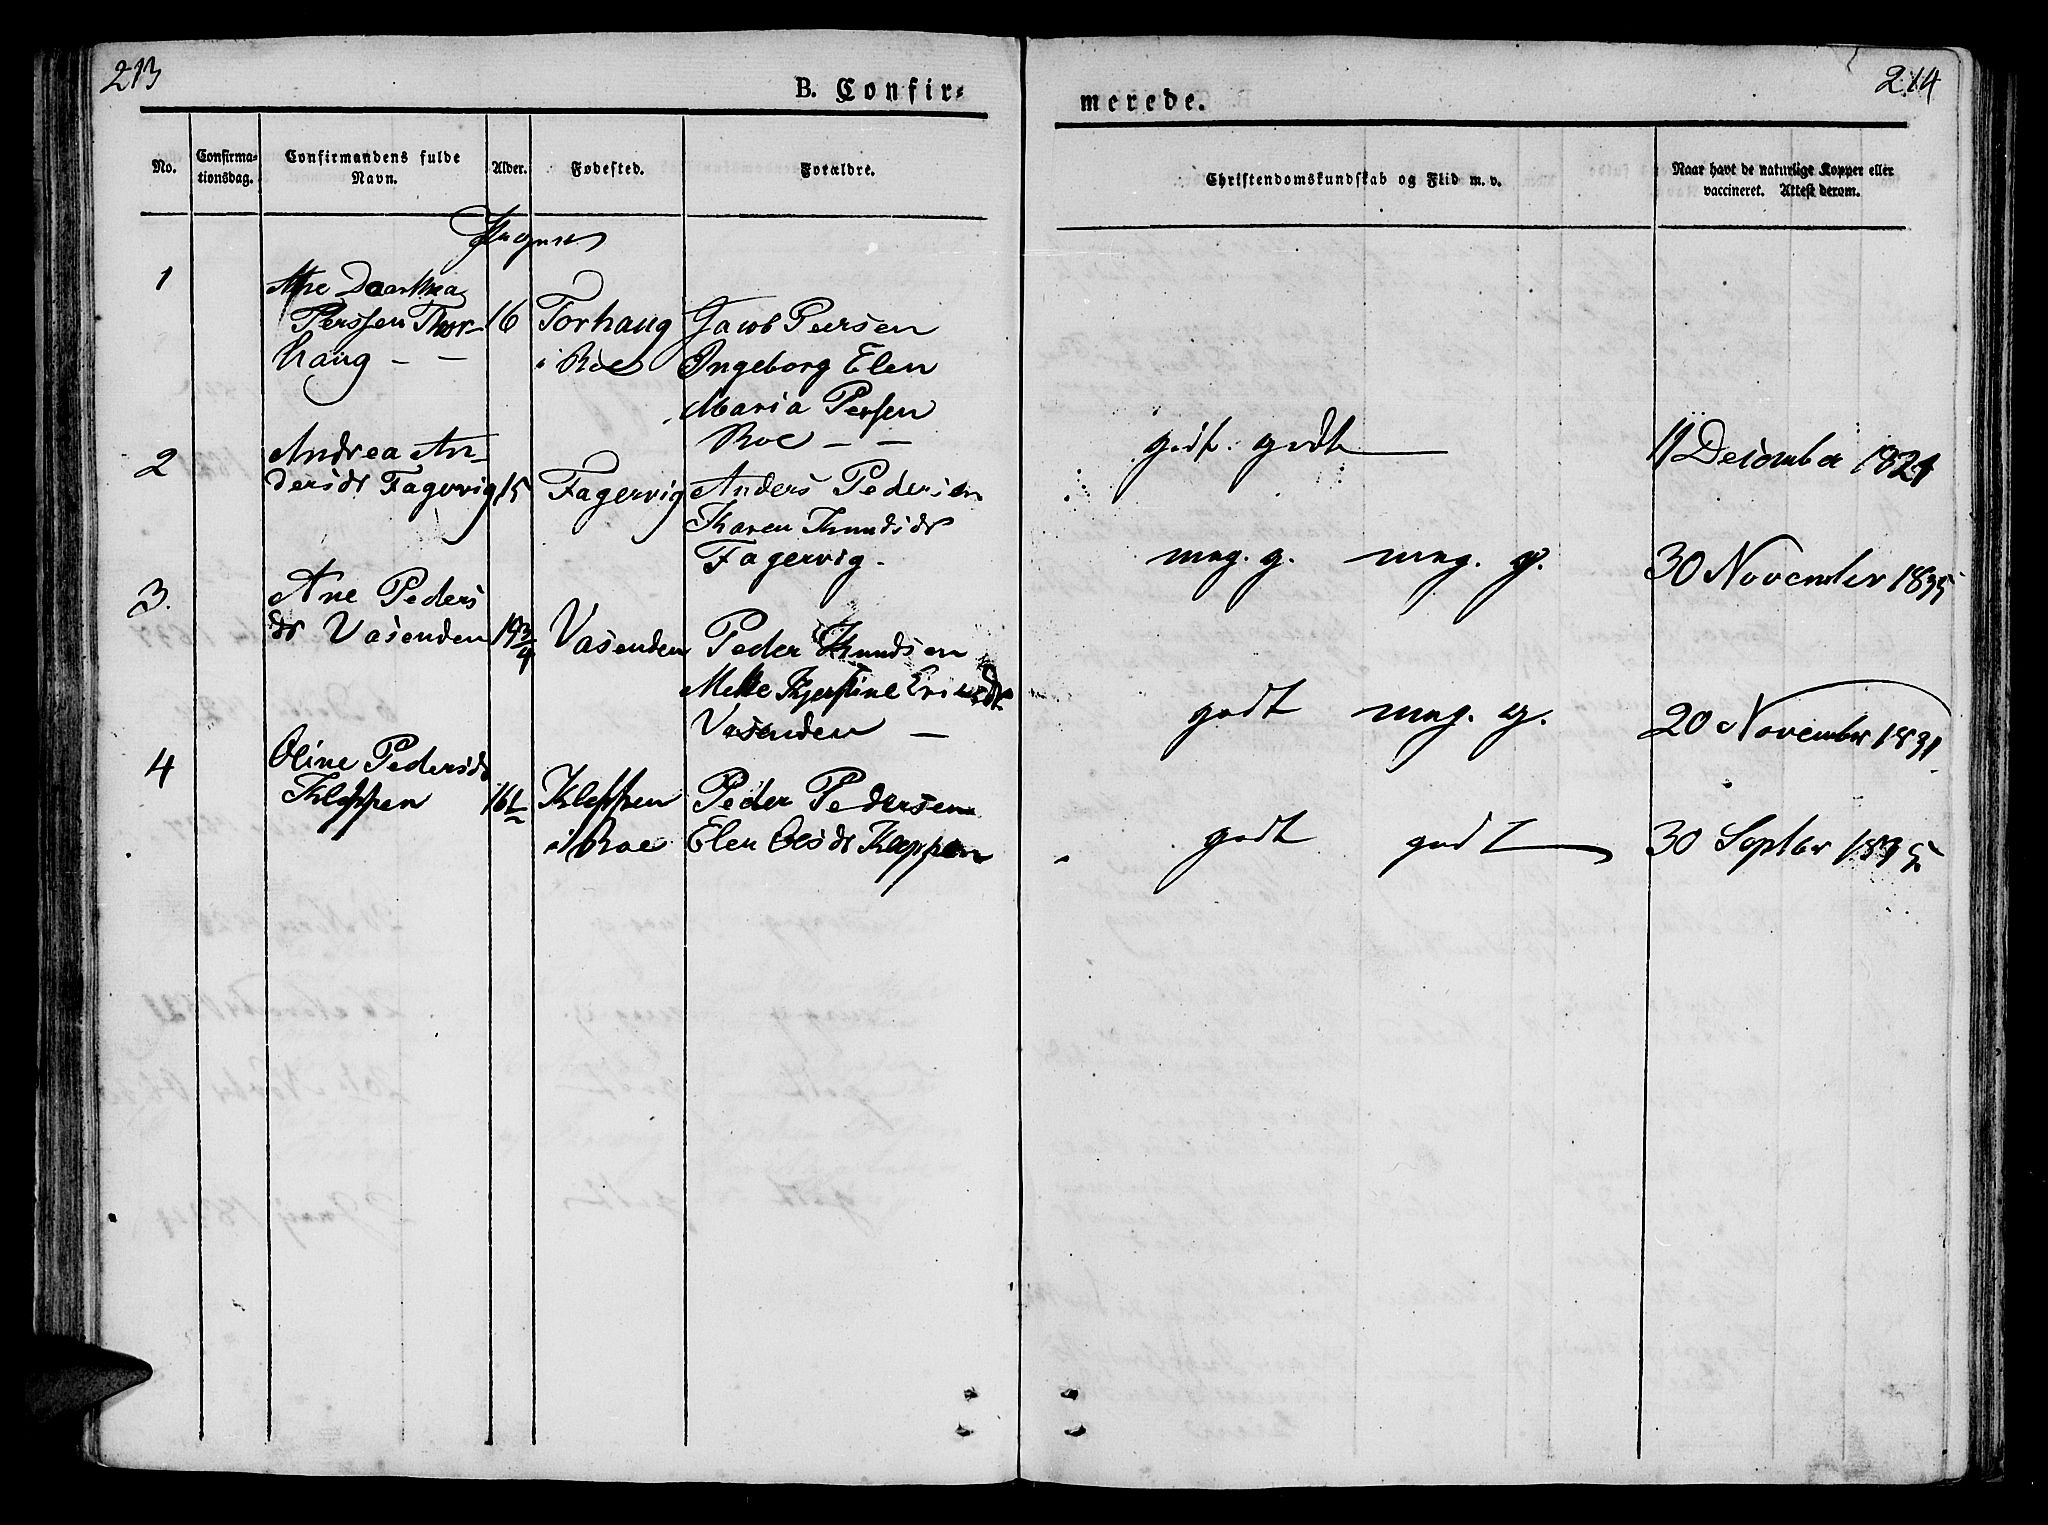 213
B. Confir-
merede.
214
No.
Confirma-
tionsdag.
Confirmandens fulde
Navn.
Alder.
Fødested.
Forældre.
Christendomskundskab og Flid m. v.
Naar havt de naturlige Kopper eller
vaccineret. Attest derom.
1
Ane
Perssen Thor-
haug - -
16
Torhaug
i Roe
Jacob Peersen
Ingeborg Elen
Maria Persen
Roe - -
godt. godt
11 December
2
Andrea An-
dersdr Fagervig
15
Fagervig
Anders Pedersen
Karen Knudsdr
Fagervig -
meg. g. meg. g.
30 November 1835
3.
Ane Peders
dr Vasenden
14 3/4
Vasenden
Peder Knudsen
Mette Kjerstine
Vasenden -
godt meg. g.
20 November 1831
4
Oline Pedersdr
Kleppen
16
Kleppen
i Roe
Peder Pedersen
Elen Olsdr Kleppen
godt godt
30 Septbr